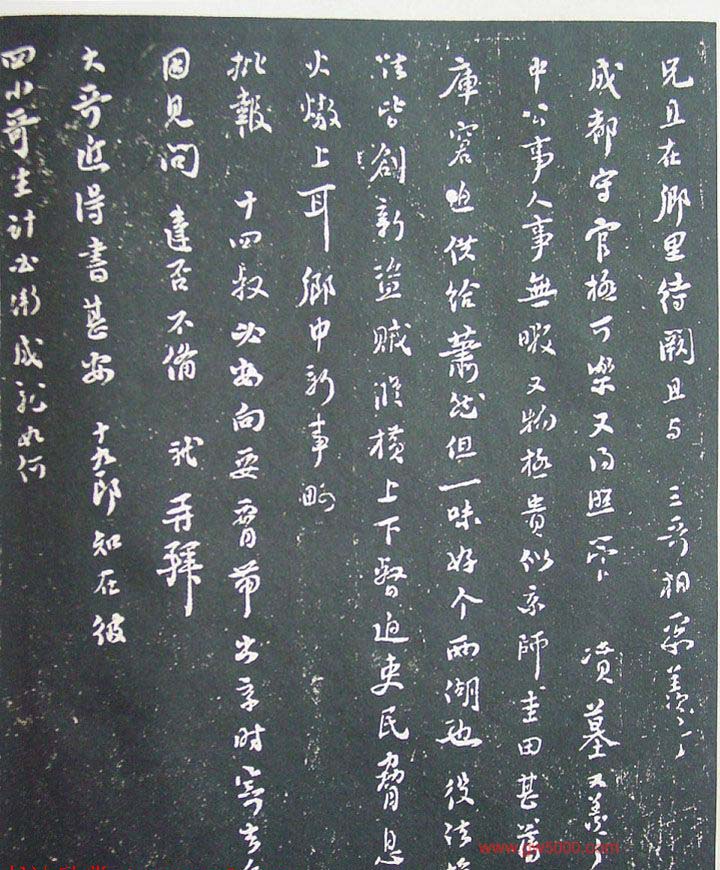 兄且在鄉里待闕且与 三哥相聚羨羨
成都守官極可樂又得照管 墳墓又羨
中公事人事無暇又物極貴似京師圭田甚薄
庫窘迫供給蕭然但一味好个西湖也役法
法皆創新盜賊縱橫上下督迫吏民脅息
火上耳鄉中新事略
批報 十四叔必安向要帶出京時寄去
因見問達否不備 軾再拜
大哥近得書甚安 十九郎知在彼
四小哥生計必漸成就如何